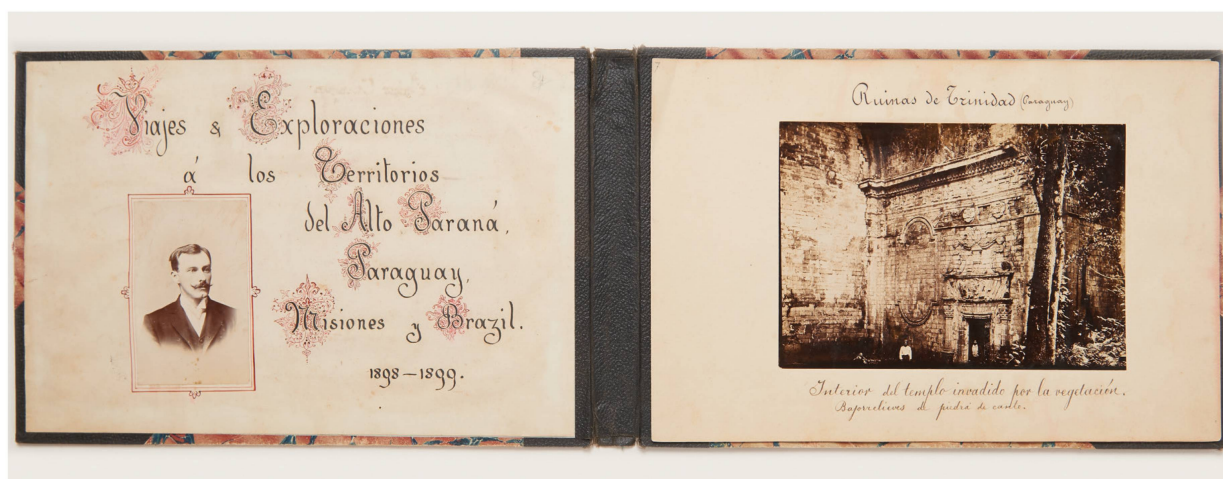 Viajes & Exploraciones
á los Territorios
del Alto Paraná,
Paraguay,
Misiones y Brazil.
1898-1899.
Ruinas de Trinidad (Paraguay)
Interior del templo invadido por la vegetación.
Bajorrelieves de piedra de canto.